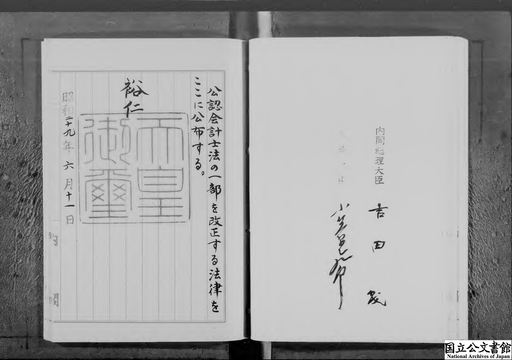 公認会計士法の一部を改正する法律を
ここに公布する。
裕仁
天皇
御璽
昭和二十九年六月十一日
内閣総理大臣
吉田茂
国立公文書館
National Archives of Japan